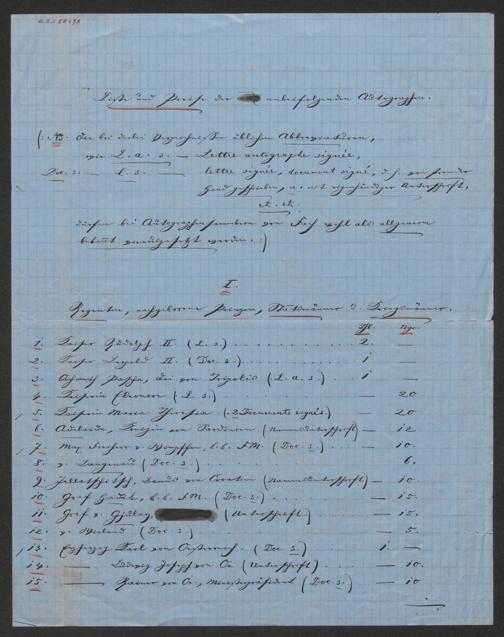 Liste und Preise der anbeifolgenden Autografen.
(NB. Die bei derlei Verzeichnissen üblichen Abbreviaturen,
wie L. a. s. — Lettre autographe signée,
Doc. s. — L. s. — lettre signée, document signé, d. h. von fremder
Hand geschrieben, u. mit eigenhändiger Unterschrift,
etc. etc.
dürfen bei Autografensammlern von Fach wohl als allgemein
bekannt vorausgesetzt werden.)
I.
Regenten, nachgeborene Prinzen, Statsmänner & Kriegsmänner.
Fl. Ngr.
1. Kaiser Rudolf II. (L. s.) 2. —
2. Kaiser Leopold II. (Doc. s.) 1 —
3. Pascha, von Tripolis (L. a. s.) 1 —
4. Kaiserin Eleonore (L. s.) — 20
5. Kaiserin Maria Theresia (2 Documents signés) — 20
6. Adelaide, Königin von Sardinien (Namensunterschrift) — 12
7. Max Freiherr v. Wimpffen, k. k. F.M. (Doc. s.) — 10.
8. v. Langenau (Doc. s.) 6.
9. Jellachich, Banus von Croatien (Namensunterschrift) — 10
10. Graf k. k. F.M. (Doc. s.) — 15.
11. Graf v. Gyulay, (Unterschrift) — 15.
12. v. (Doc. s.) — 5.
13. Erzherzog Karl von Oesterreich. (Doc. s.) 1. —
14. — Ludwig Joseph von Oe. (Unterschrift) — 10.
15. — Rainer von Oe., Ministerpräsident (Doc. s.) — 10.